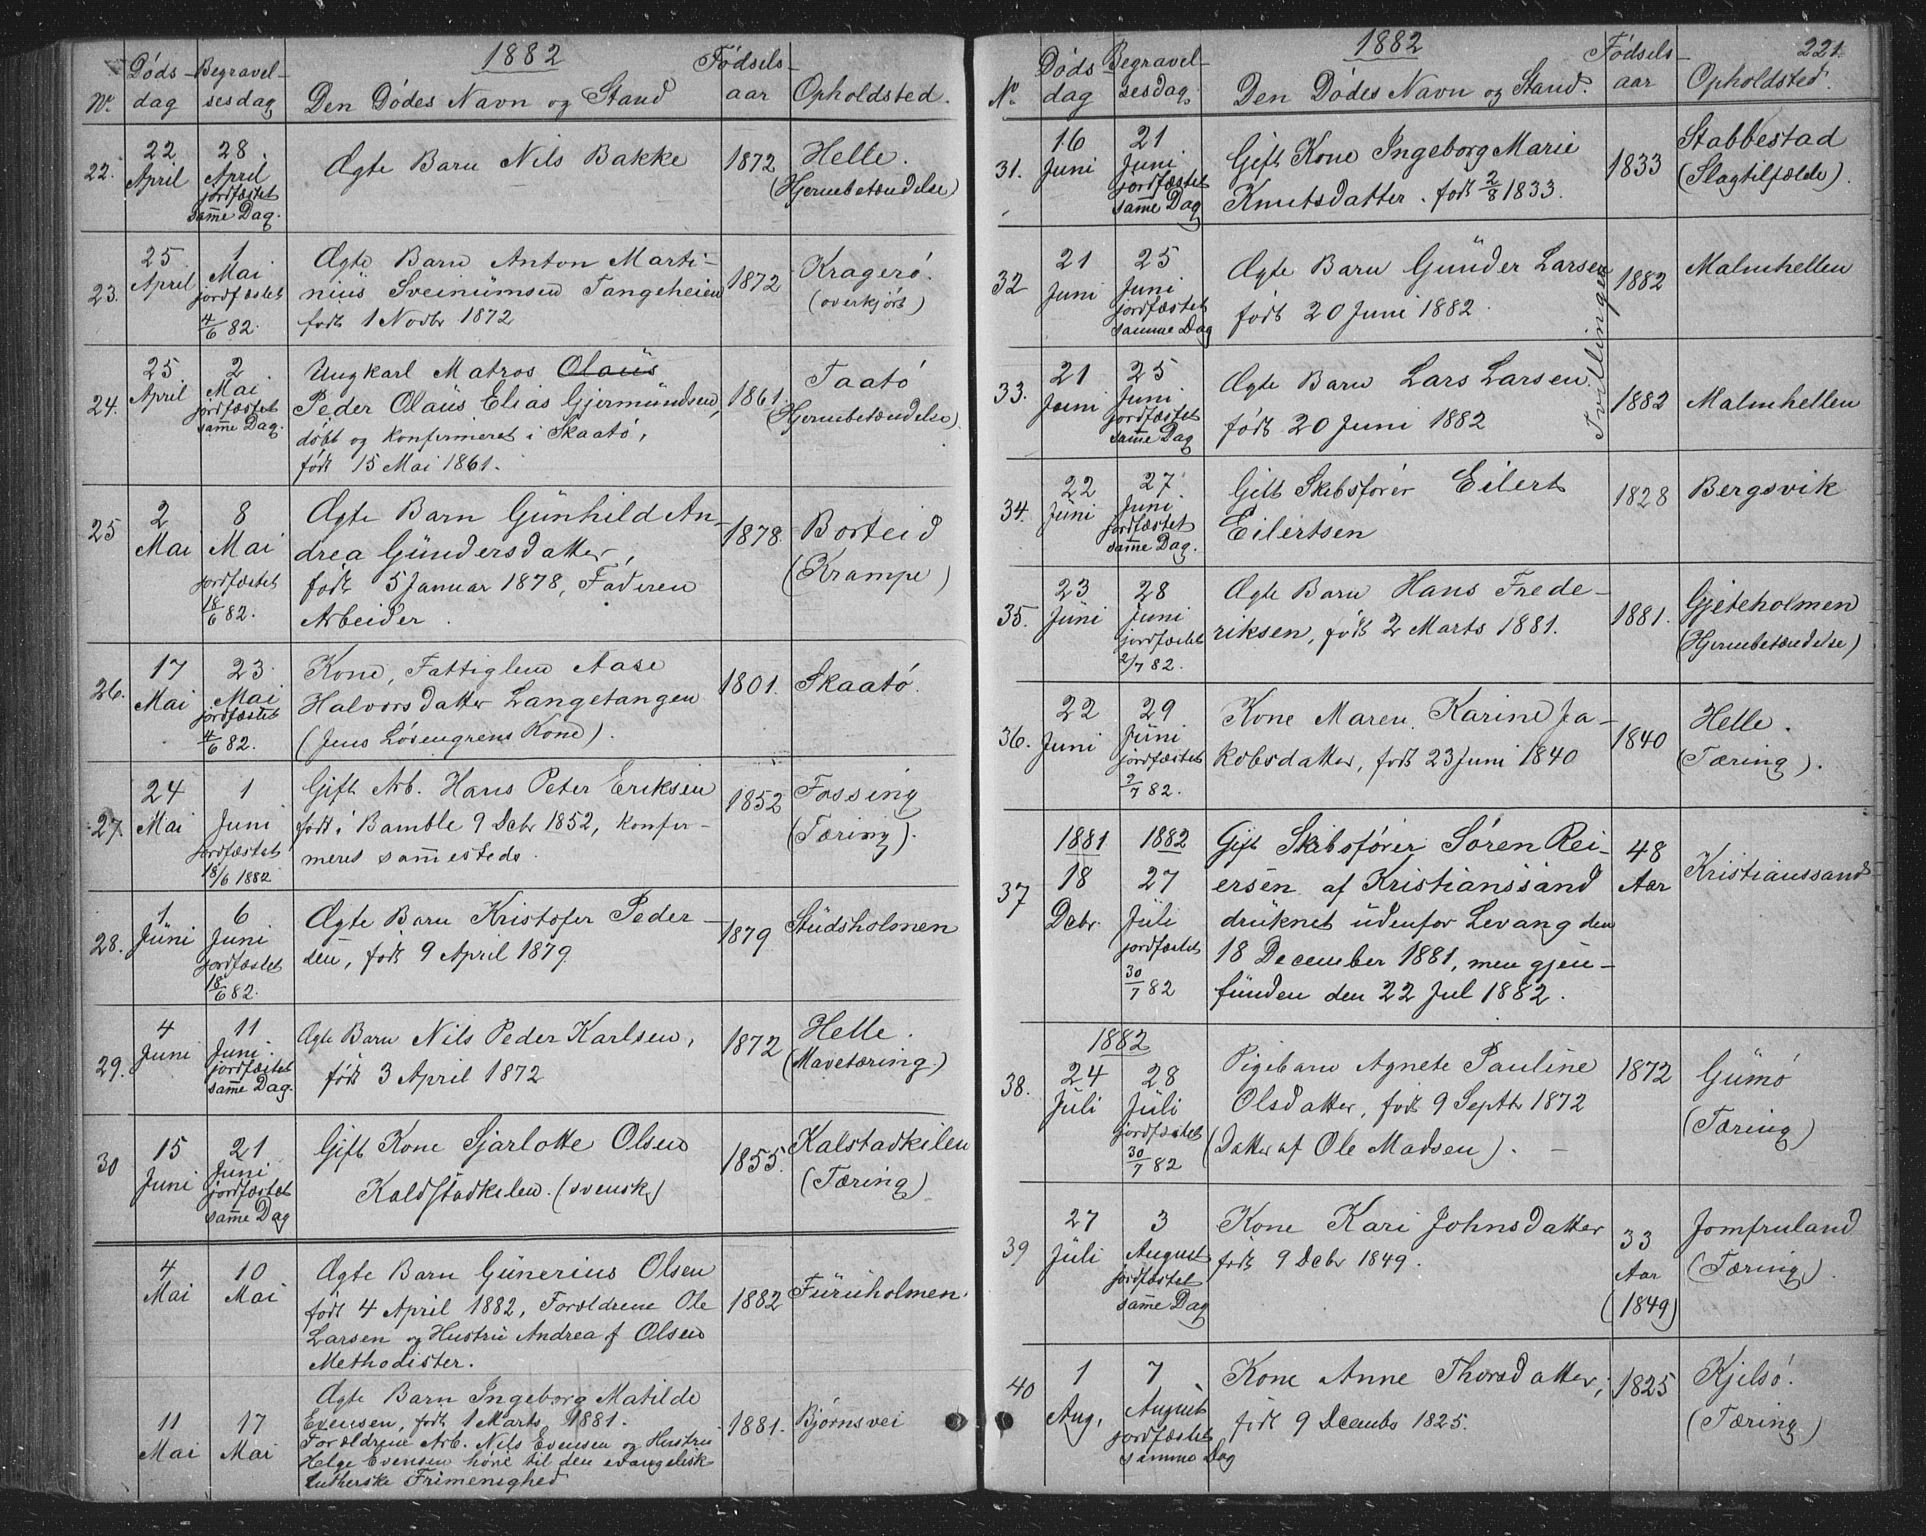 1882
No.
Døds-
dag
Begravel-
sesdag
Den Dødes Navn og Stand
Fødsels-
aar
Opholdsted.
22.
22
April
28
April
jordfæstet
samme Dag.
Ægte Barn Nils Bakke
1872
Helle.
(Hjernebetændelse)
23.
25
April
1
Mai
jordfæstet
4/6 82.
Ægte Barn Anton Marti-
nius Sveinumsen Tangeheien
født 1 Novbr 1872
1872
Kragerø.
(overkjørt)
24.
25
April
2
Mai
jordfæstet
samme Dag.
Ungkarl Matros Olaus
Peder Olaus Elias Gjermundsen,
døbt og konfirmeret i Skaatø,
født 15 Mai 1861.
1861.
Taatø
(Hjernebetændelse)
25
2
Mai
8
Mai
jordfæstet
18/6 82.
Ægte Barn Gunhild An-
drea Gundersdatter,
født 5 Januar 1878, Faderen
Arbeider.
1878.
Borteid
(Krampe)
26.
17
Mai
23
Mai
jordfæstet
4/6 82.
Kone, Fattiglem Aase
Halvorsdatter Langetangen
(Jens Løsengrens Kone).
1801.
Skaatø.
27.
24
Mai
1
Juni
jordfæstet
18/6 1882
Gift Arb. Hans Peter Eriksen
født i Bamble 9 Dcbr 1852, konfir-
meret sammesteds.
1852
Fossing
(Tæring).
28.
1
Juni
6
Juni
jordfæstet
18/6 82.
Ægte Barn Kristofer Peder-
sen, født 9 April 1879
1879
Studsholmen
29.
4
Juni
11
Juni
jordfæstet
samme Dag.
Ægte Barn Nils Peder Karlsen,
født 3 April 1872
1872
Helle.
(Mavetæring.)
30
15
Juni
21
Juni
jordfæstet
samme Dag
Gift Kone Sjarlotte Olsen
Kaldstadkilen. (svensk)
1855.
Kalstadkilen
(Tæring)
4
Mai
10
Mai
Ægte Barn Gunerius Olsen
født 4 April 1882, Forældrene Ole
Larsen og Hustru Andrea f Olsen
Methodister.
1882
Furuholmen.
11
Mai
17
Mai
Ægte Barn Ingeborg Matilde
Evensen, født 1 Marts 1881.
Forældrene Arb. Nils Evensen og Hustru
Helge Evensen høre til den evangelisk
lutherske Frimenighed
1881.
Bjørnsvei
1882
221.
No.
Døds
dag
Begravel-
sesdag.
Den Dødes Navn og Stand.
Fødsels-
aar
Opholdsted.
31.
16
Juni
21
Juni
jordfæstet
samme Dag
Gift Kone Ingeborg Marie
Knutsdatter. født 2/8 1833.
1833
Stabbestad
(Slagtilfælde).
32
21
Juni
25
Juni
jordfæstet
samme Dag
Ægte Barn Gunder Larsen
født 20 Juni 1882.
Tvillinger
1882
Malmhellen
33.
21
Juni
25
Juni
jordfæstet
samme Dag
Ægte Barn Lars Larsen.
født 20 Juni 1882
1882
Malmhellen
34.
22
Juni
27
Juni
jordfæstet
samme Dag.
Gift Skibsfører Eilert
Eilertsen
1828
Bergsvik
35.
23
Juni
28
Juni
jordfæstet
2/7 82.
Ægte Barn Hans Frede-
riksen, født 2 Marts 1881.
1881.
Gjeteholmen
(Hjernebetændelse)
36.
22
Juni
29
Juni
jordfæstet
2/7 82.
Kone Maren Karine Ja-
kobsdatter, født 23 Juni 1840
1840
Helle.
(Tæring).
37
1881
18
Dcbr.
1882
27
Juli
jordfæstet
30/7 82
Gift Skibsfører Søren Rei-
ersen af Kristianssand
druknet udenfor Levang den
18 December 1881, men gjen-
funden den 22 Jul 1882.
48
Aar
Kristianssand
38.
1882
24
Juli
28
Juli
jordfæstet
30/7 82
Pigebarn Agnete Pauline
Olsdatter, født 9 Septbr 1872
(Datter af Ole Madsen). –
1872
Gumø
(Tæring)
39
27
Juli
3
August
jordfæstet
samme Dag
Kone Kari Johnsdatter
født 9 Dcbr 1849.
33
Aar
(1849)
Jomfruland
(Tæring).
40
1
Aug.
7
August
jordfæstet
samme Dag
Kone Anne Thorsdatter,
født 9 Decembr 1825.
1825
Kjilsø.
(Tæring)